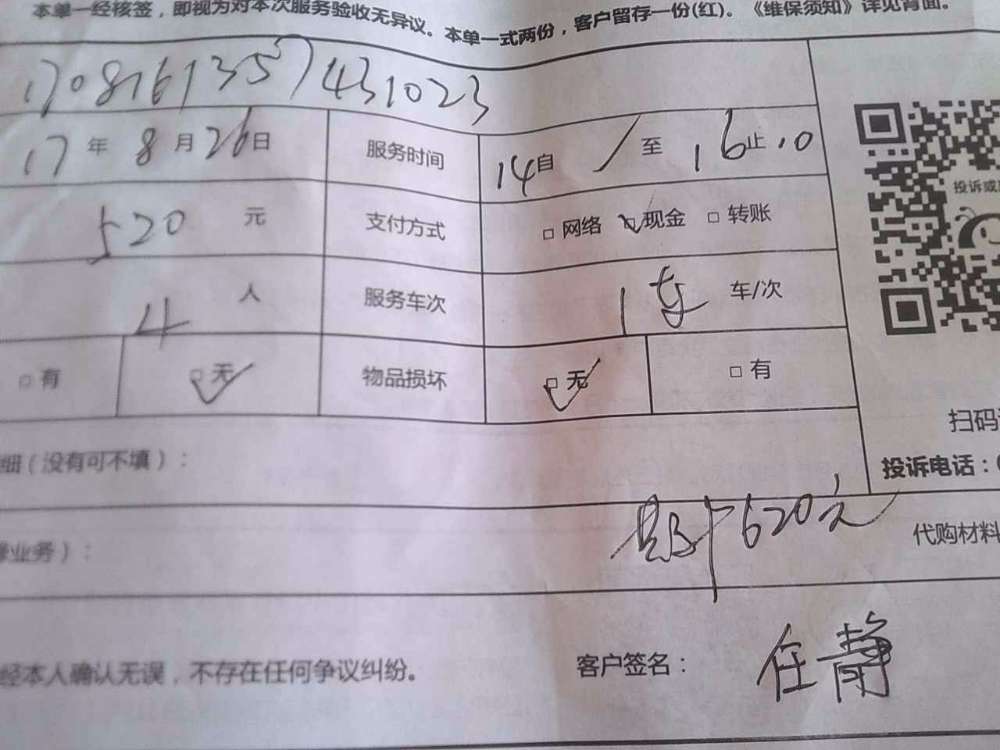 本单一经核签，即视为对本次服务验收无异议。本单一式两份，客户留存一份(红)。《维保须知》详见背面。
1708161357431023
17年8月26日 服务时间 14自/至16止10
520元 支付方式 □网络 ☑现金 □转账
投诉或
4人 服务车次 1车 车/次
□有 ☑无 物品损坏 ☑无 □有
扫码
细（没有可不填）：
投诉电话：
620元
业务）：
代购材料
经本人确认无误，不存在任何争议纠纷。 客户签名：任静